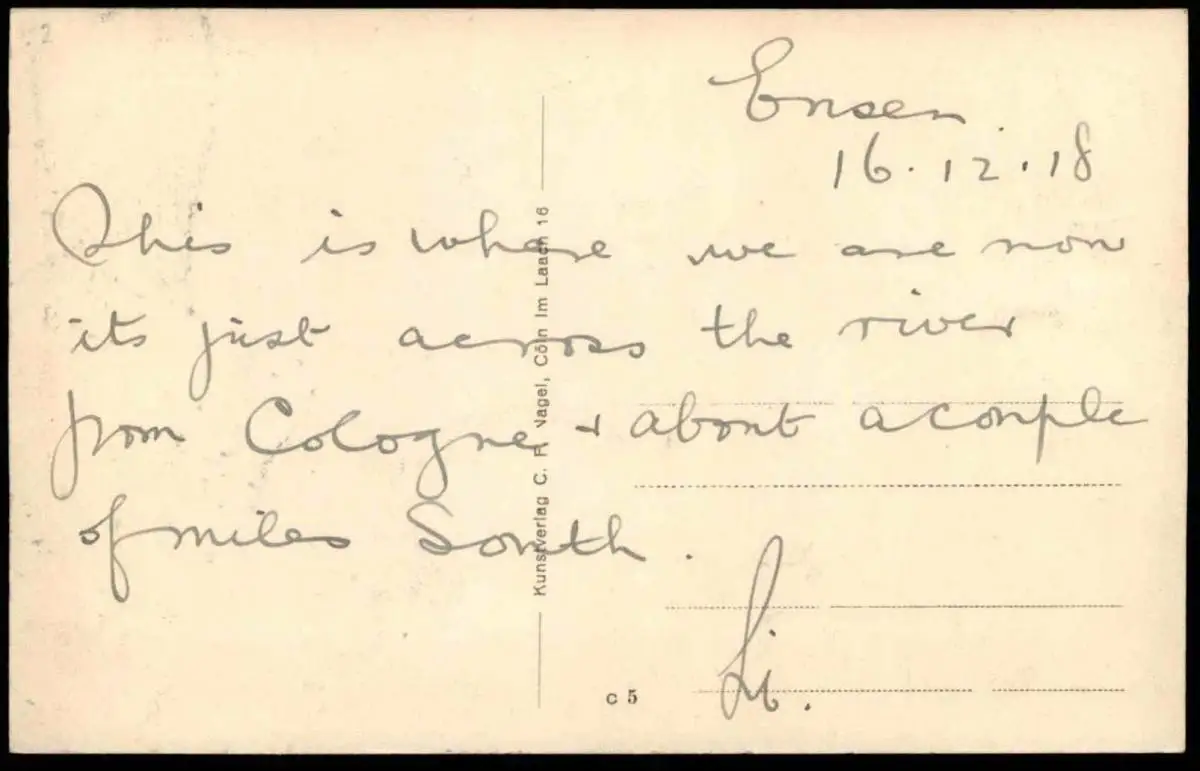 Ensen.
16.12.18
This is where we are now
its just across the river
from Cologne + about a couple
of miles South.
Kunstverlag C. F. Nagel, Cöln Im Laach 16
c 5